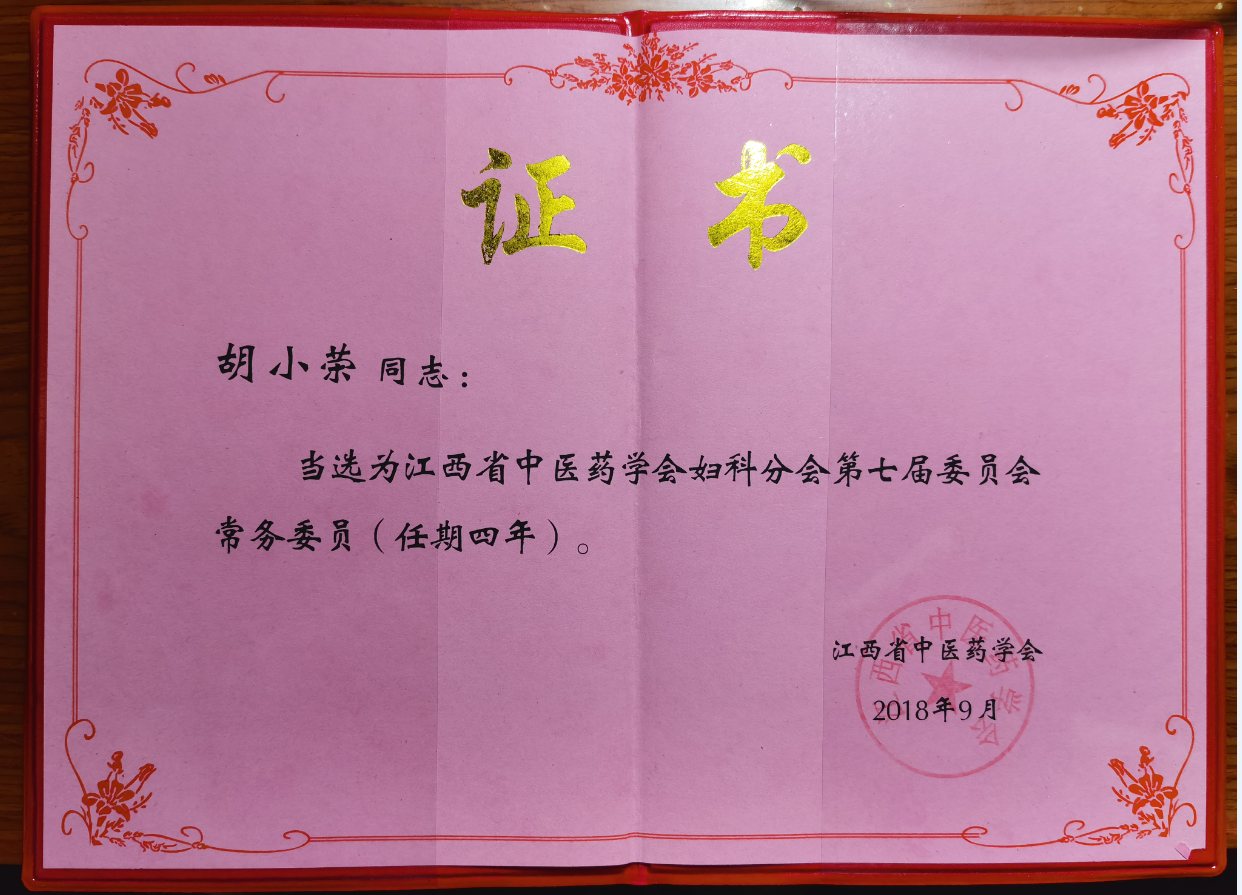 证书
胡小荣 同志：
当选为江西省中医药学会妇科分会第七届委员会
常务委员（任期四年）。
江西省中医药学会
2018年9月
江西省中医药学会